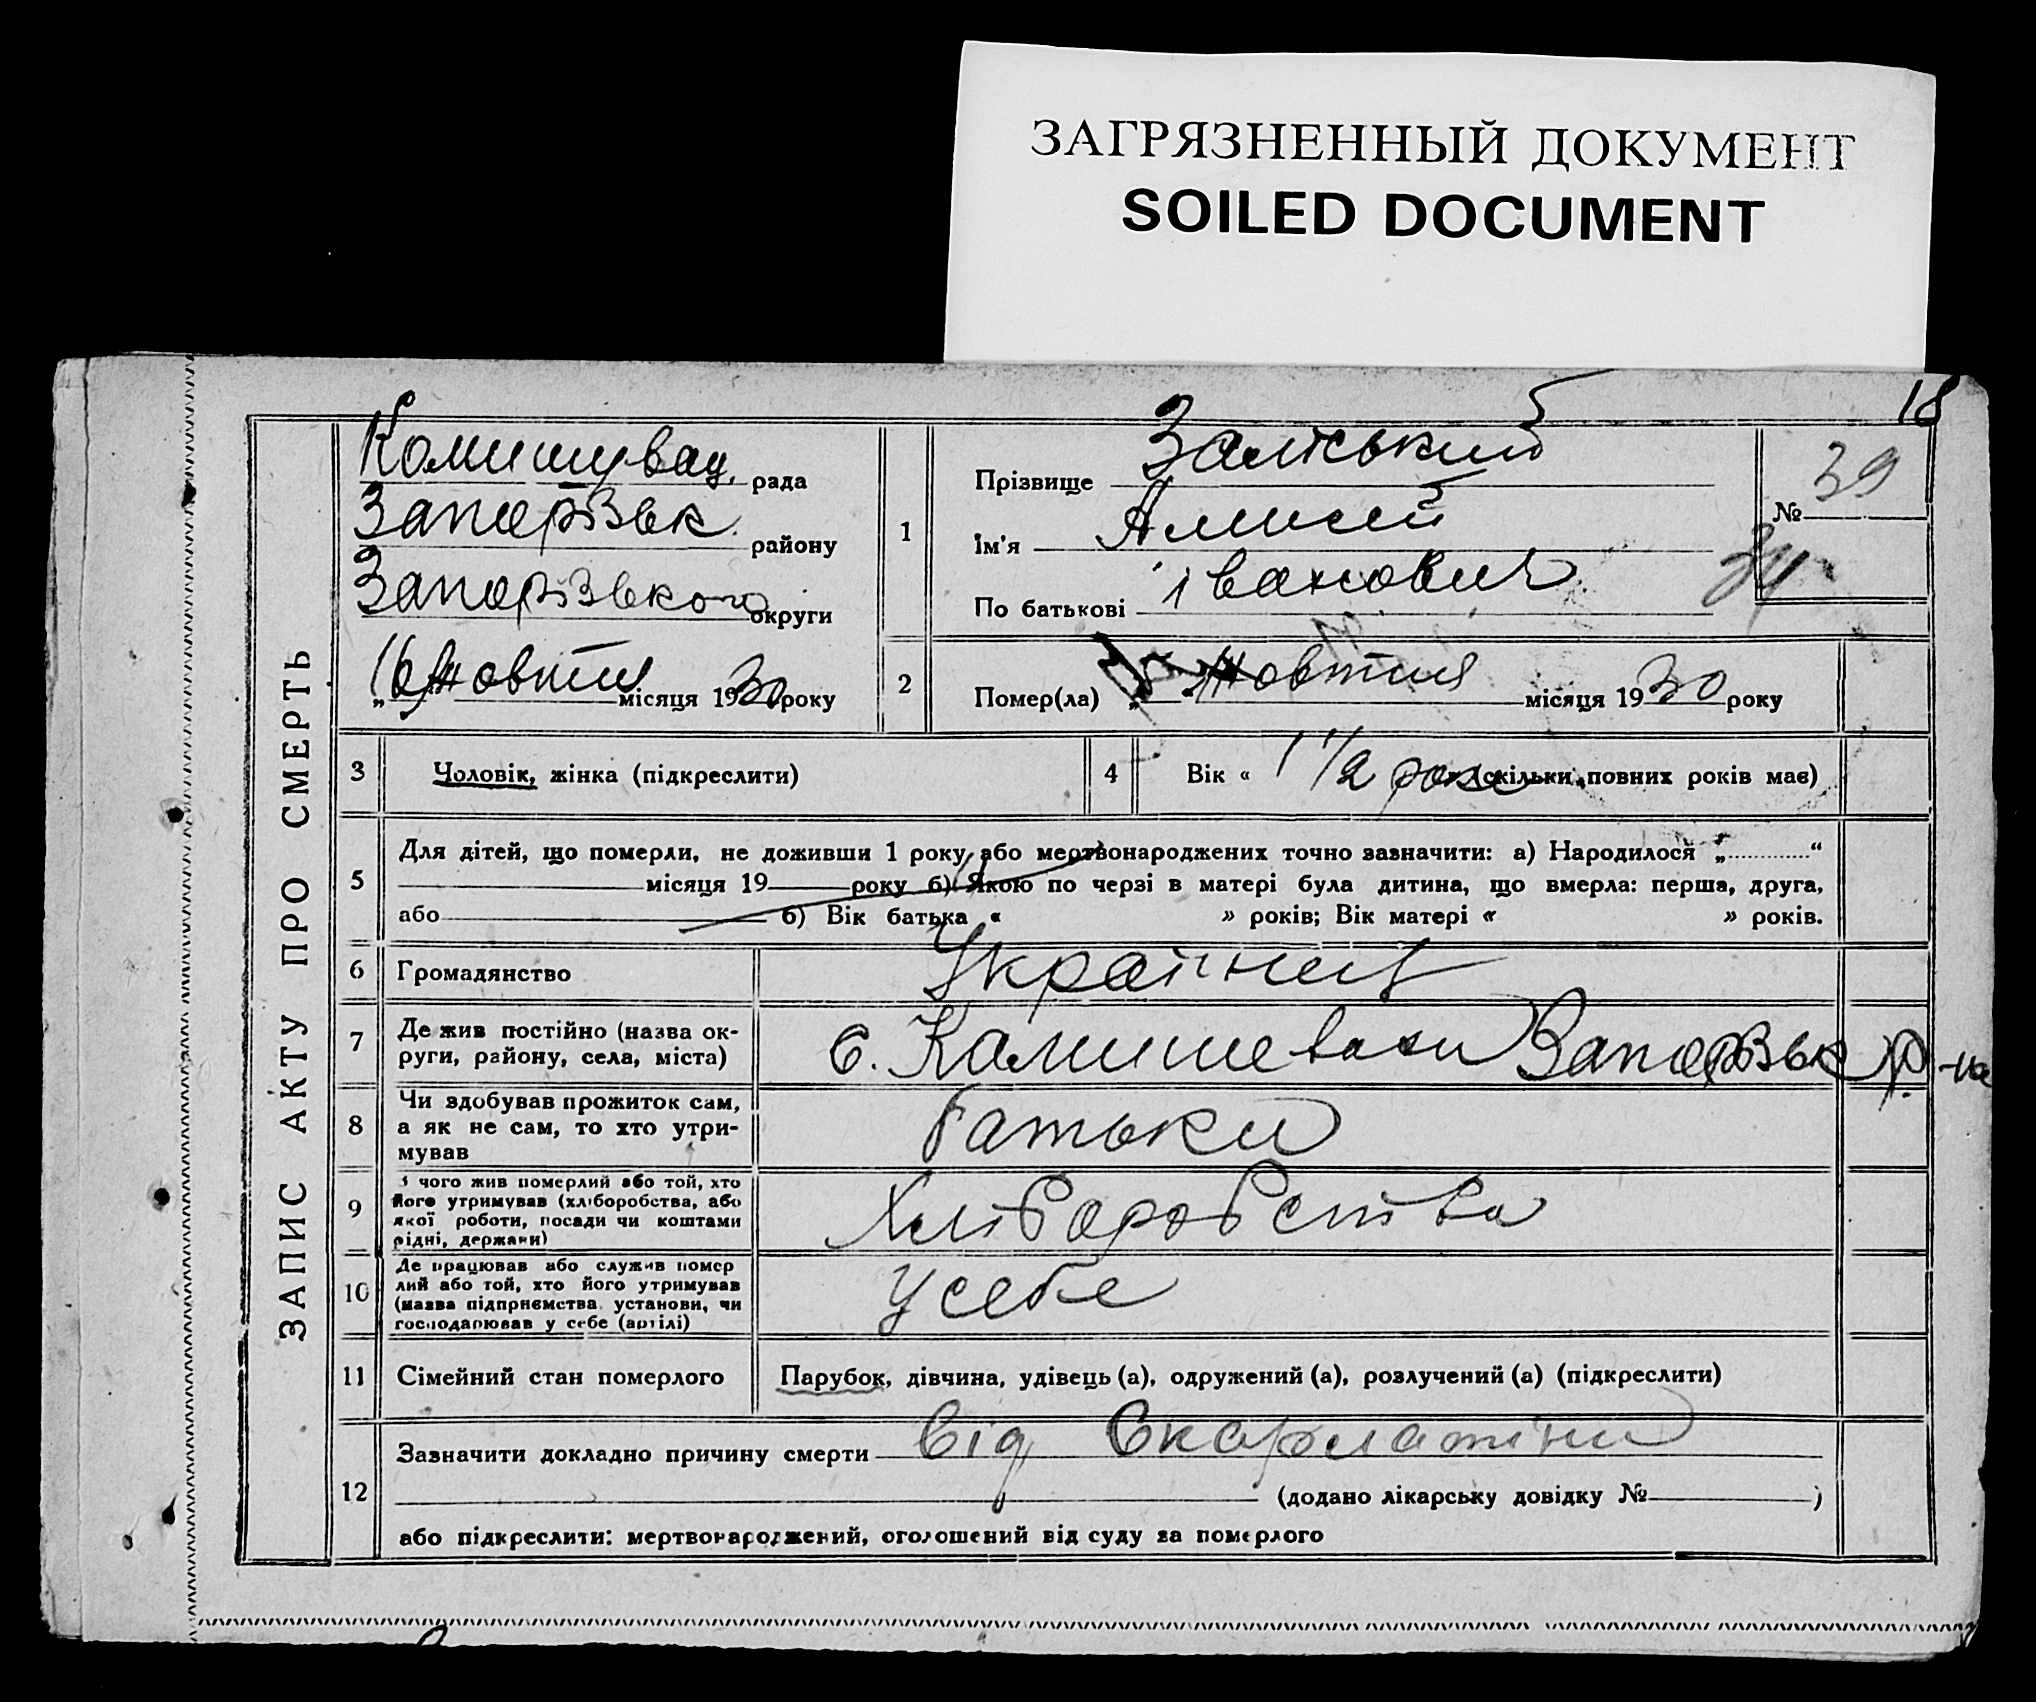 ЗАГРЯЗНЕННЫЙ ДОКУМЕНТ
SOILED DOCUMENT
18
ЗАПИС АКТУ ПРО СМЕРТЬ
Комишувац. рада
Запорізьк. району
Запорізького округи
„16 Жовтня місяця 1930 року
1
Прізвище Заліський
Ім'я
По батькові Іванович
№ 39
2
Помер(ла) „ Жовтня місяця 1930 року
3 Чоловік, жінка (підкреслити)
4 Вік « 1 1/2 роки (скільки повних років має)
5 Для дітей, що померли, не доживши 1 року або мертвонароджених точно зазначити: а) Народилося „ “
місяця 19 року б) Якою по черзі в матері була дитина, що вмерла: перша, друга,
або б) Вік батька « » років; Вік матері « » років.
6 Громадянство Українец
7 Де жив постійно (назва ок-
руги, району, села, міста)
с. Камишеваха Запорізьк р-на
8 Чи здобував прожиток сам,
а як не сам, то хто утри-
мував
батьки
9 З чого жив померлий або той, хто
його утримував (хліборобства, або
якої роботи, посади чи коштами
рідні, держави)
Хліборобства
10 Де працював або служив помер
лий або той, хто його утримував
(назва підприємства, установи, чи
господарював у себе (артілі)
У себе
11 Сімейний стан померлого Парубок, дівчина, удівець (а), одружений (а), розлучений (а) (підкреслити)
12 Зазначити докладно причину смерти від Скарлатіни
(додано лікарську довідку № )
або підкреслити: мертвонароджений, оголошений від суду за померлого